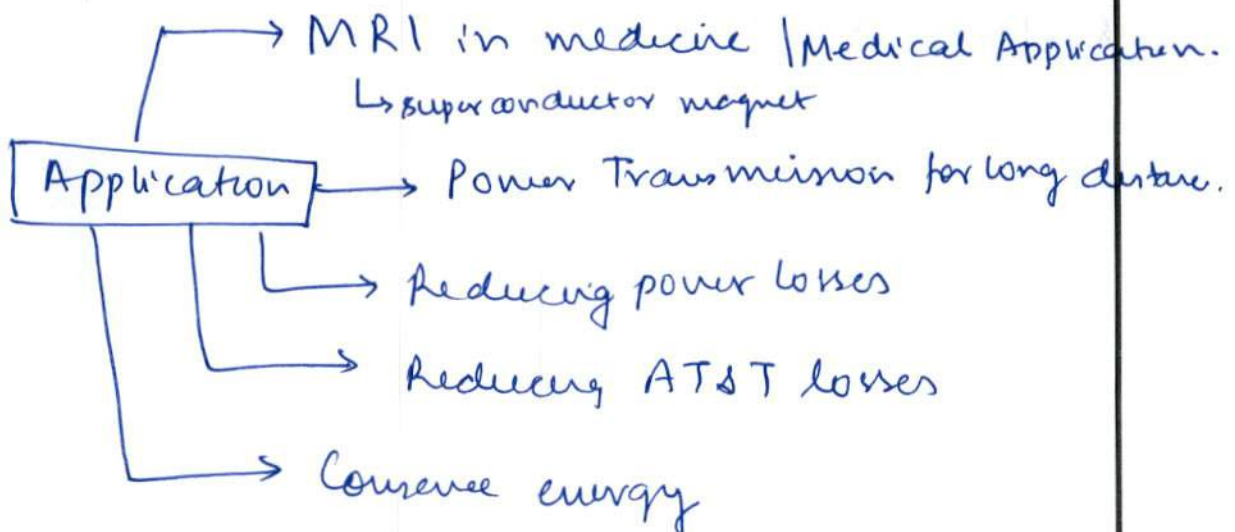 MRI in medicine | Medical Application.
↳ superconductor magnet
Application → Power Transmission for long distance.
→ Reducing power losses
→ Reducing AT&T losses
→ Conserve energy